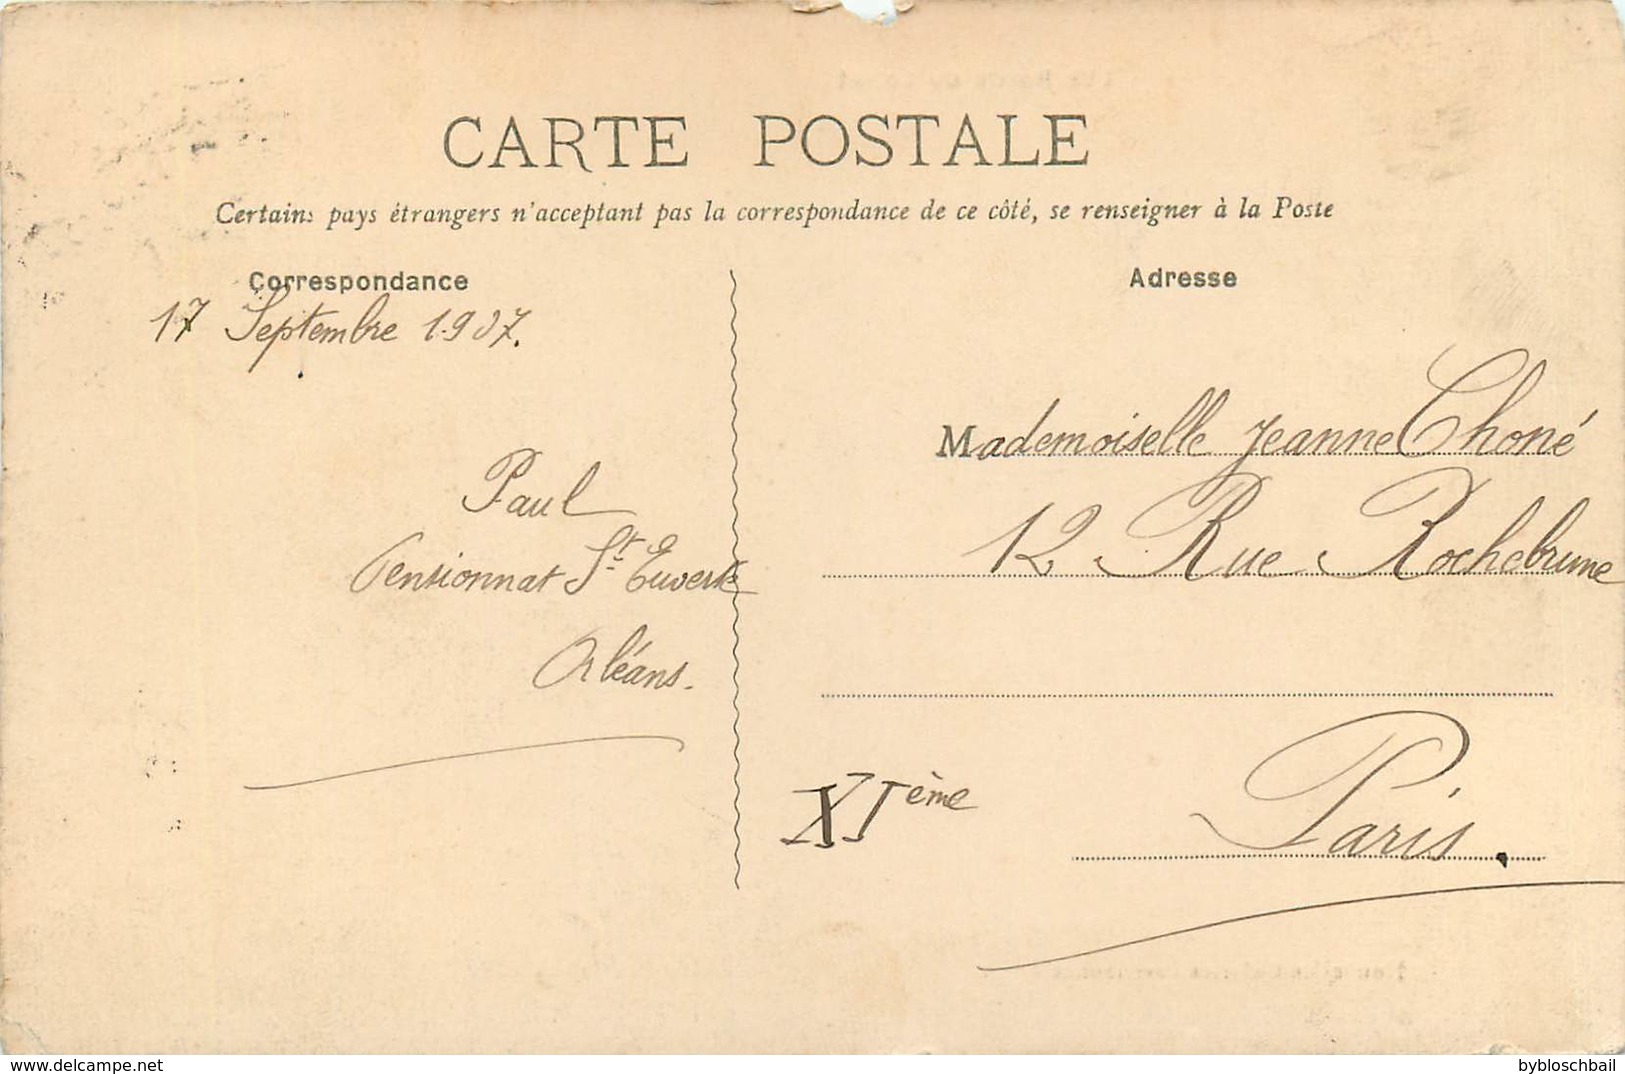 CARTE POSTALE
Certains pays étrangers n'acceptant pas la correspondance de ce côté, se renseigner à la Poste
Correspondance
17 Septembre 1.907.
Paul
Pensionnat St. Euverte
Orléans.
Adresse
Mademoiselle Jeanne Choné
12 Rue Rochebrune
XIème
Paris.
https://www.delcampe.net
bybloschbail